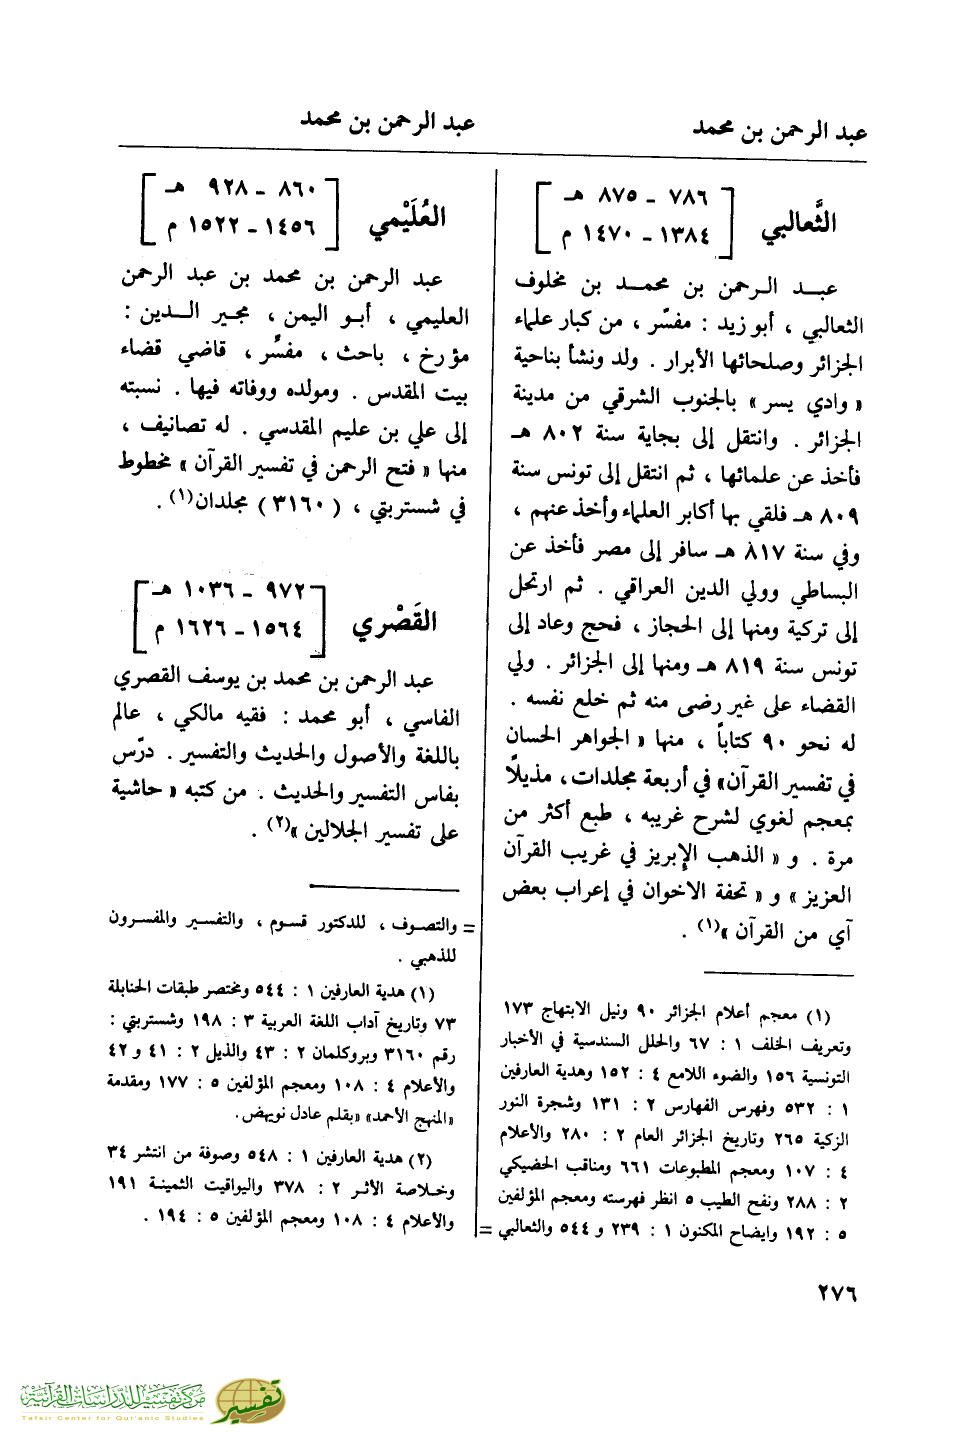 عبد الرحمن بن محمد
عبد الرحمن بن محمد
الثَّعالبي
[ ٧٨٦ - ٨٧٥ هـ
١٣٨٤ - ١٤٧٠ م ]
عبد الرحمن بن محمد بن مخلوف
الثعالبي ، أبو زيد : مفسّر ، من كبار علماء
الجزائر وصلحائها الأبرار . ولد ونشأ بناحية
« وادي يسر » بالجنوب الشرقي من مدينة
الجزائر . وانتقل إلى بجاية سنة ٨٠٢ هـ
فأخذ عن علمائها ، ثم انتقل إلى تونس سنة
٨٠٩ هـ فلقي بها أكابر العلماء وأخذ عنهم ،
وفي سنة ٨١٧ هـ سافر إلى مصر فأخذ عن
البساطي وولي الدين العراقي . ثم ارتحل
إلى تركية ومنها إلى الحجاز ، فحج وعاد إلى
تونس سنة ٨١٩ هـ ومنها إلى الجزائر . ولي
القضاء على غير رضى منه ثم خلع نفسه .
له نحو ٩٠ كتاباً ، منها « الجواهر الحسان
في تفسير القرآن» في أربعة مجلدات، مذيلاً
بمعجم لغوي لشرح غريبه ، طبع أكثر من
مرة . و « الذهب الإبريز في غريب القرآن
العزيز » و « تحفة الاخوان في إعراب بعض
آي من القرآن »(١) .
(١) معجم أعلام الجزائر ٩٠ ونيل الابتهاج ١٧٣
وتعريف الخلف ١ : ٦٧ والحلل السندسية في الأخبار
التونسية ١٥٦ والضوء اللامع ٤ : ١٥٢ وهدية العارفين
١ : ٥٣٢ وفهرس الفهارس ٢ : ١٣١ وشجرة النور
الزكية ٢٦٥ وتاريخ الجزائر العام ٢ : ٢٨٠ والأعلام
٤ : ١٠٧ ومعجم المطبوعات ٦٦١ ومناقب الحضيكي
٢ : ٢٨٨ ونفح الطيب ٥ انظر فهرسته ومعجم المؤلفين
٥ : ١٩٢ وايضاح المكنون ١ : ٢٣٩ و ٥٤٤ والثعالبي =
العُلَيْمي
[ ٨٦٠ - ٩٢٨ هـ
١٤٥٦ - ١٥٢٢ م ]
عبد الرحمن بن محمد بن عبد الرحمن
العليمي ، أبو اليمن ، مجير الدين :
مؤرخ ، باحث ، مفسِّر ، قاضي قضاء
بيت المقدس . ومولده ووفاته فيها . نسبته
إلى علي بن عليم المقدسي . له تصانيف ،
منها « فتح الرحمن في تفسير القرآن » مخطوط
في شستربتي ، ( ٣١٦٠ ) مجلدان(١) .
القَصْري
[ ٩٧٢ - ١٠٣٦ هـ
١٥٦٤ - ١٦٢٦ م ]
عبد الرحمن بن محمد بن يوسف القصري
الفاسي ، أبو محمد : فقيه مالكي ، عالم
باللغة والأصول والحديث والتفسير . درّس
بفاس التفسير والحديث . من كتبه « حاشية
على تفسير الجلالين »(٢) .
= والتصوف ، للدكتور قسوم ، والتفسير والمفسرون
للذهبي .
(١) هدية العارفين ١ : ٥٤٤ ومختصر طبقات الحنابلة
٧٣ وتاريخ آداب اللغة العربية ٣ : ١٩٨ وشستربتي :
رقم ٣١٦٠ وبروكلمان ٢ : ٤٣ والذيل ٢ : ٤١ و ٤٢
والأعلام ٤ : ١٠٨ ومعجم المؤلفين ٥ : ١٧٧ ومقدمة
«المنهج الأحمد» «بقلم عادل نويهض.
(٢) هدية العارفين ١ : ٥٤٨ وصفوة من انتشر ٣٤
وخلاصة الأثر ٢ : ٣٧٨ واليواقيت الثمينة ١٩١
والأعلام ٤ : ١٠٨ ومعجم المؤلفين ٥ : ١٩٤ .
٢٧٦
مركز تفسير للدراسات القرآنية
Tafsir Center for Qur'anic Studies
تفسير